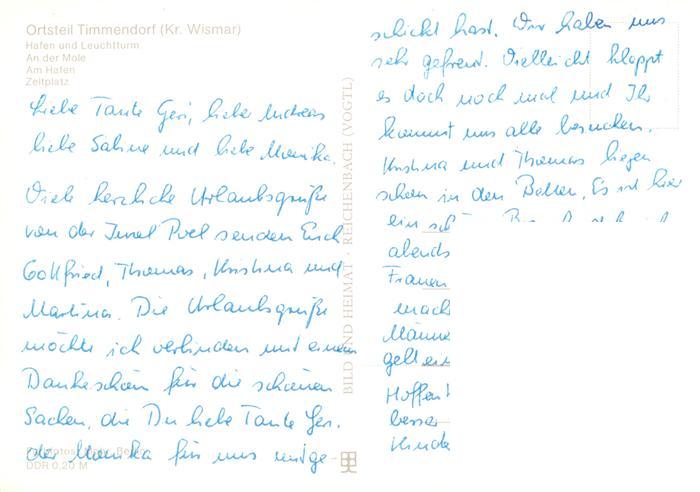 Ortsteil Timmendorf (Kr. Wismar)
Hafen und Leuchtturm
An der Mole
Am Hafen
Zeltplatz
Liebe Tante Geri, liebe Andreas
liebe Sabine und liebe Monika.
Viele herzliche Urlaubsgrüße
von der Insel Poel senden Euch
Gottfried, Thomas, Kristina und
Martina. Die Urlaubsgrüße
möchte ich verbinden mit einem
Dankeschön für die schönen
Sachen, die Du liebe Tante Geri.
der Monika für uns mitge-
DDR 0,20 M
BILD UND HEIMAT REICHENBACH (VOGTL)
schickt hast. Wir haben uns
sehr gefreut. Vielleicht klappt
es doch noch mal und Ihr
kommt uns alle besuchen.
Kristina und Thomas liegen
schon in den Betten. Es ist hier
ein
abends
Frauen
mach
Männe
gelt
Hoffen
besser
Kinde